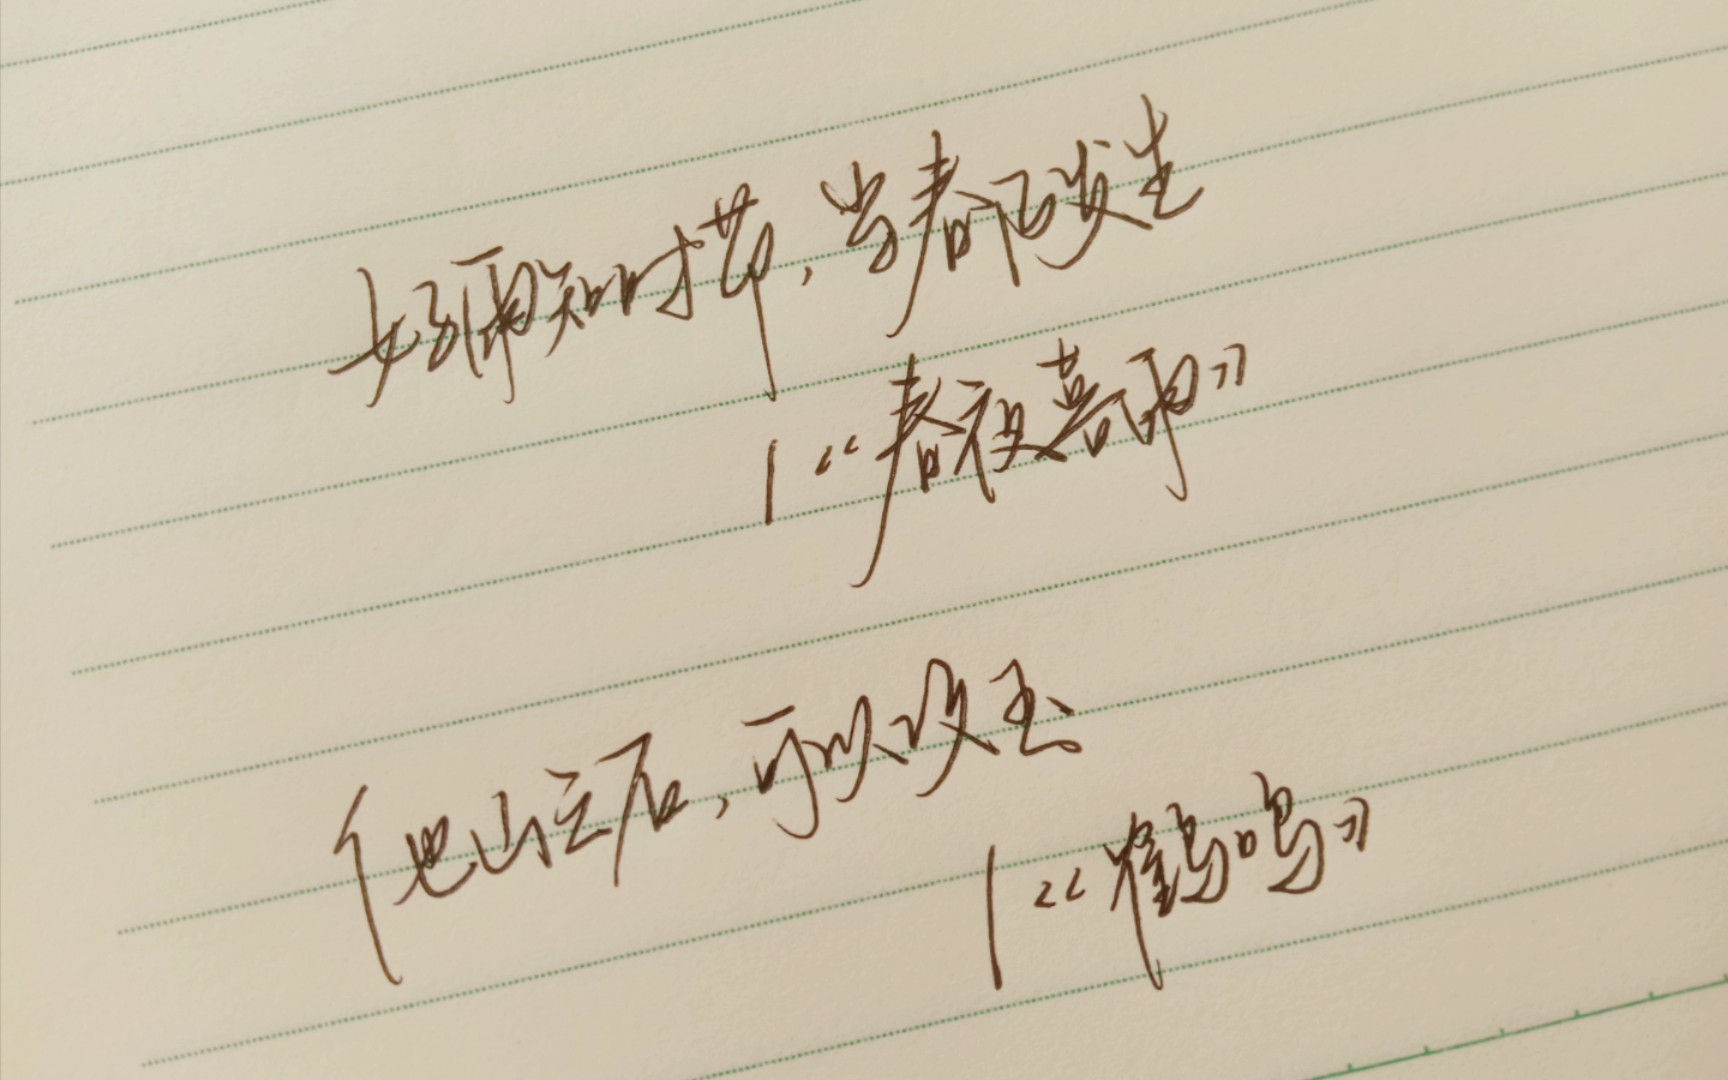 好雨知时节,当春乃发生
|《春夜喜雨》
他山之石,可以攻玉
|《鹤鸣》